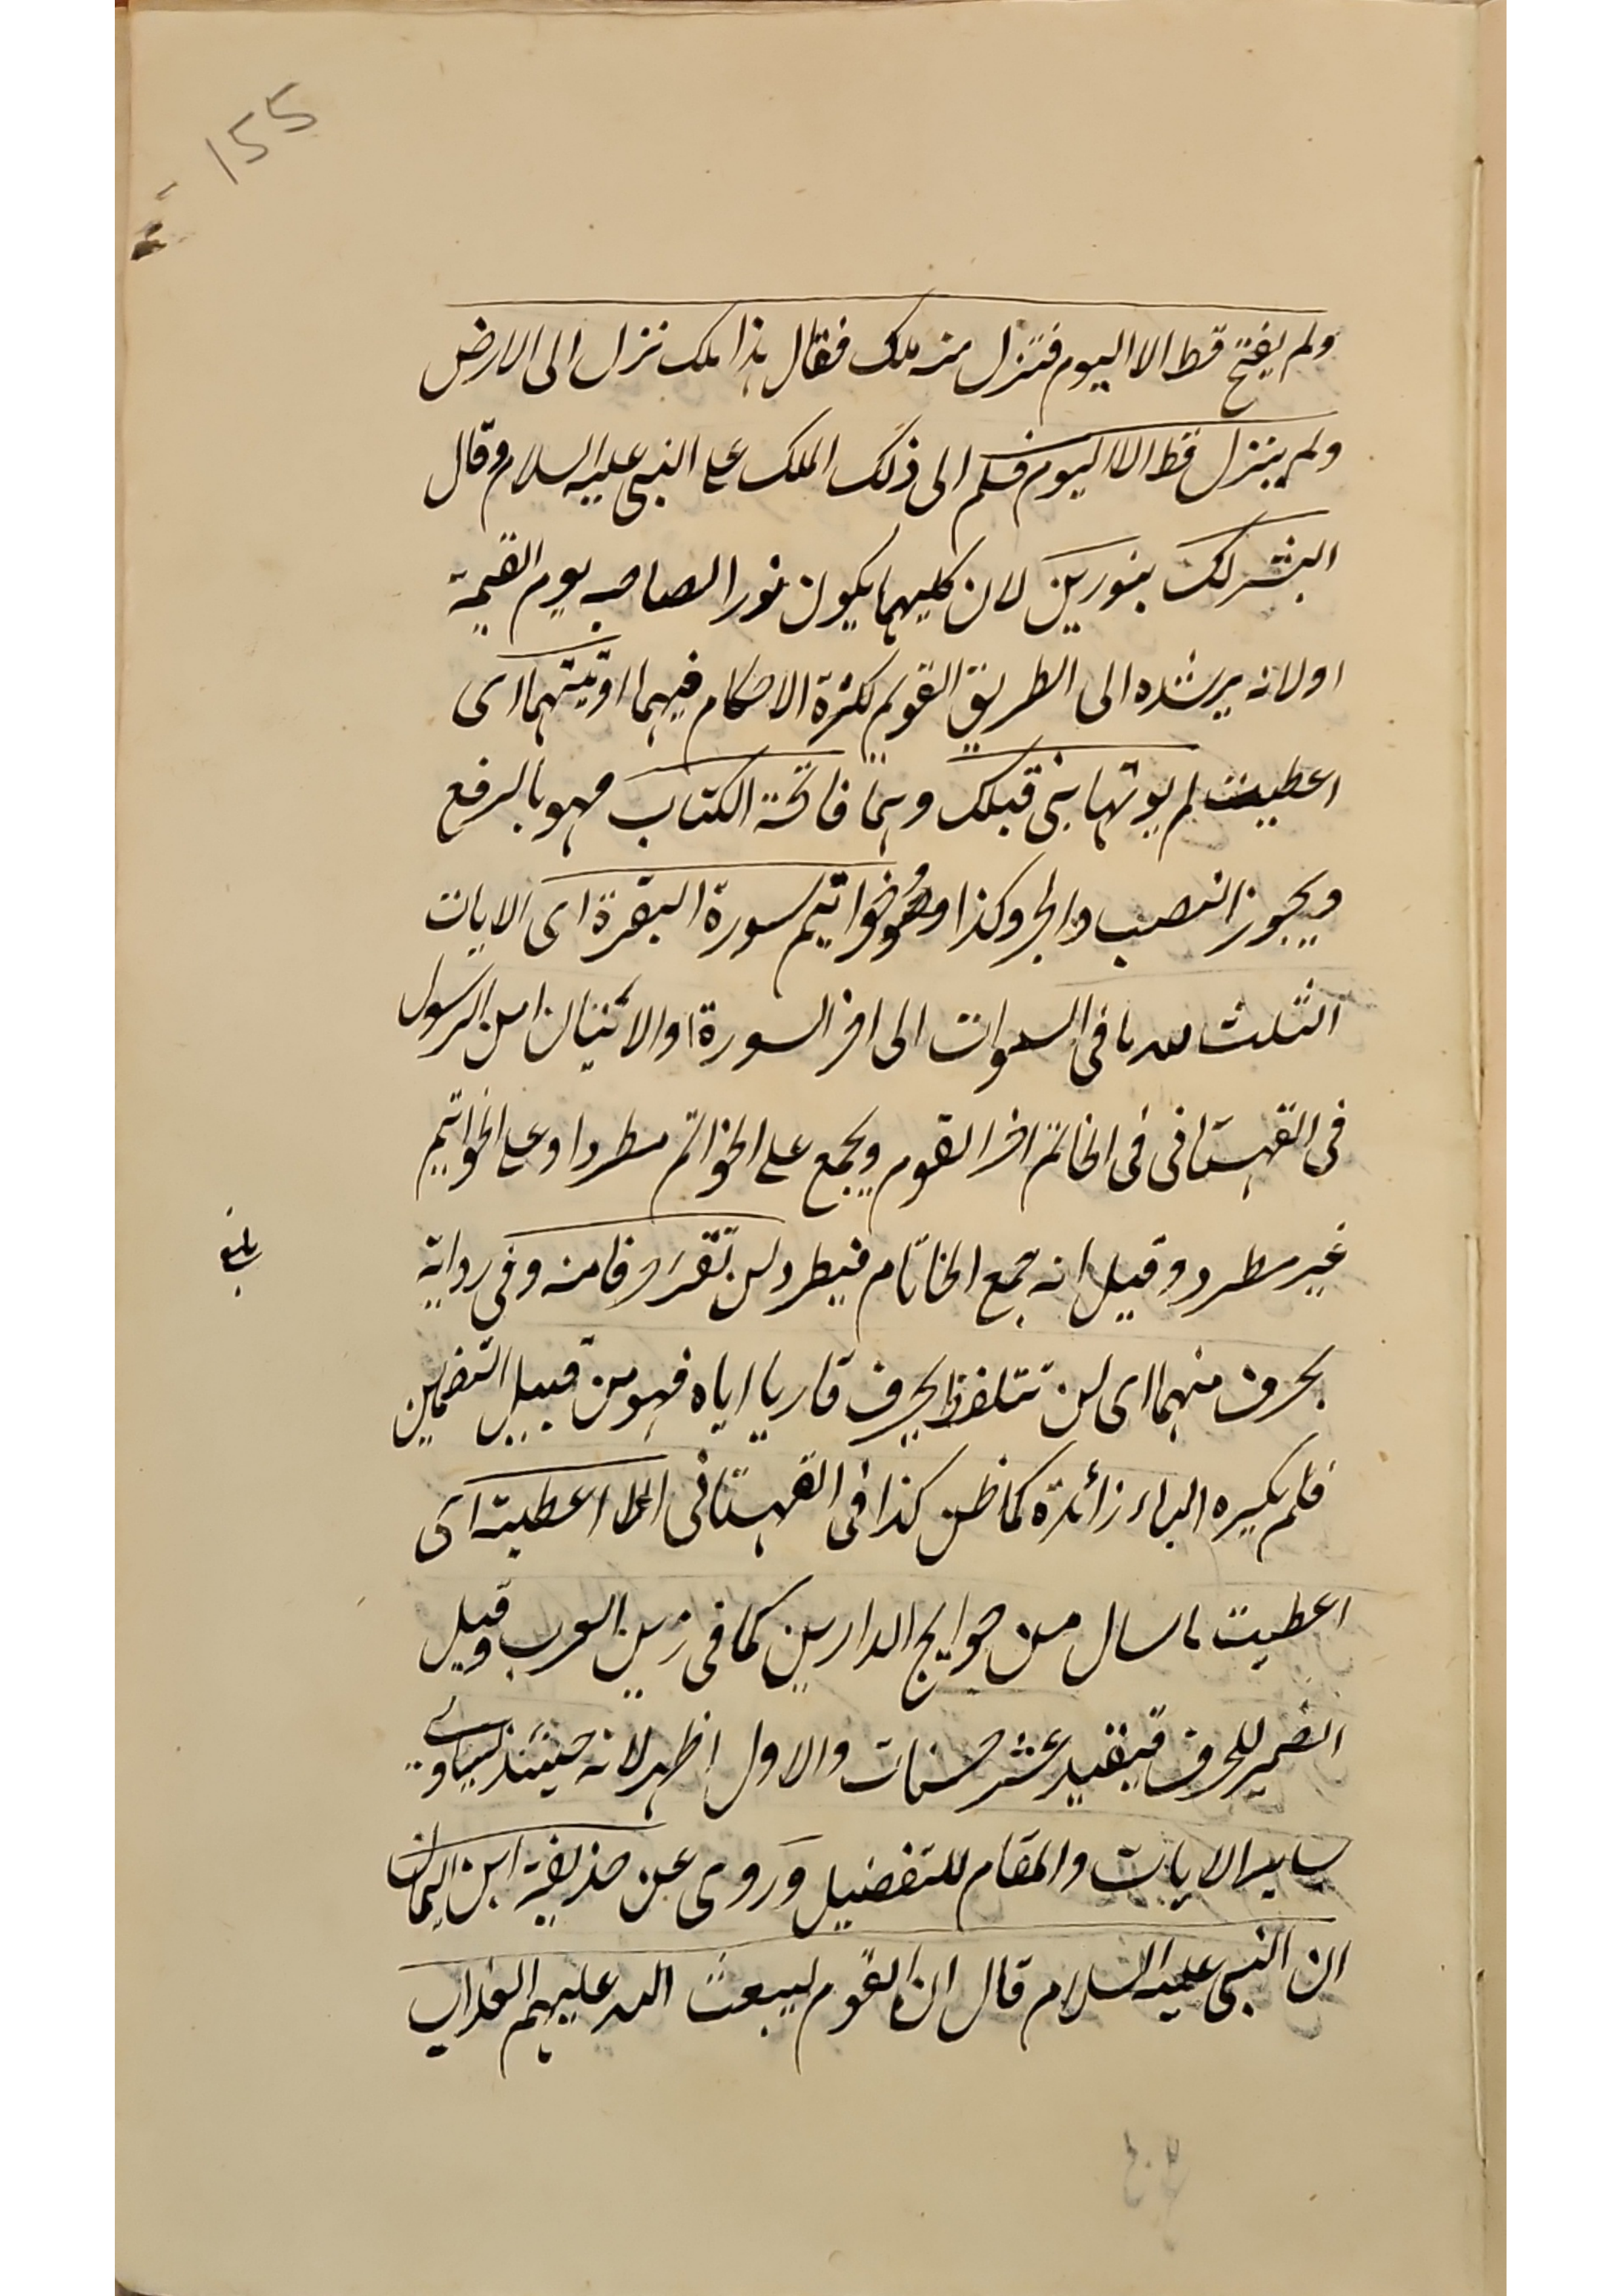 155
ولم يفتح قط الا اليوم فنزل منه ملك فقال هذا ملك نزل الى الارض
ولم ينزل قط الا اليوم فسلم الى ذلك الملك على النبى عليه السلام وقال
ابشر لك بنورين لان كليهما يكون نورا لصاحبه يوم القيمة
او لانه يرشده الى الطريق القويم لكثرة الاحكام فيهما اوتيتهما اى
اعطيت لم يوتها نبى قبلك وهما فاتحة الكتاب فهو بالرفع
ويجوز النصب والجر وكذا وخواتيم سورة البقرة اى الايات
الثلث لله ما فى السموات الى اخر السورة او الاثنيان امن الرسول
فى القهستانى فى الخاتم اخر القوم ويجمع على الخواتم مطردا وعلى الخواتيم
غير مطرد وقيل انه جمع الخاتام فيطرد لن تقرء حرفا منه وفى رواية
بحرف منهما اى لن تتلفظ بحرف قاريا اياه فهو من قبيل التضمين
فلم يكن الباء زائدة كما ظن كذا فى القهستانى الا اعطيته اى
اعطيت ما سال من حوايج الدارين كما فى زين العرب وقيل
الضمير للحرف فيفيد عشر حسنات والاول اظهر لانه حينئذ يساوى
ساير الايات والمقام للتفضيل وروى عن حذيفة ابن اليمان
ان النبى عليه السلام قال ان القوم ليبعث الله عليهم العذاب